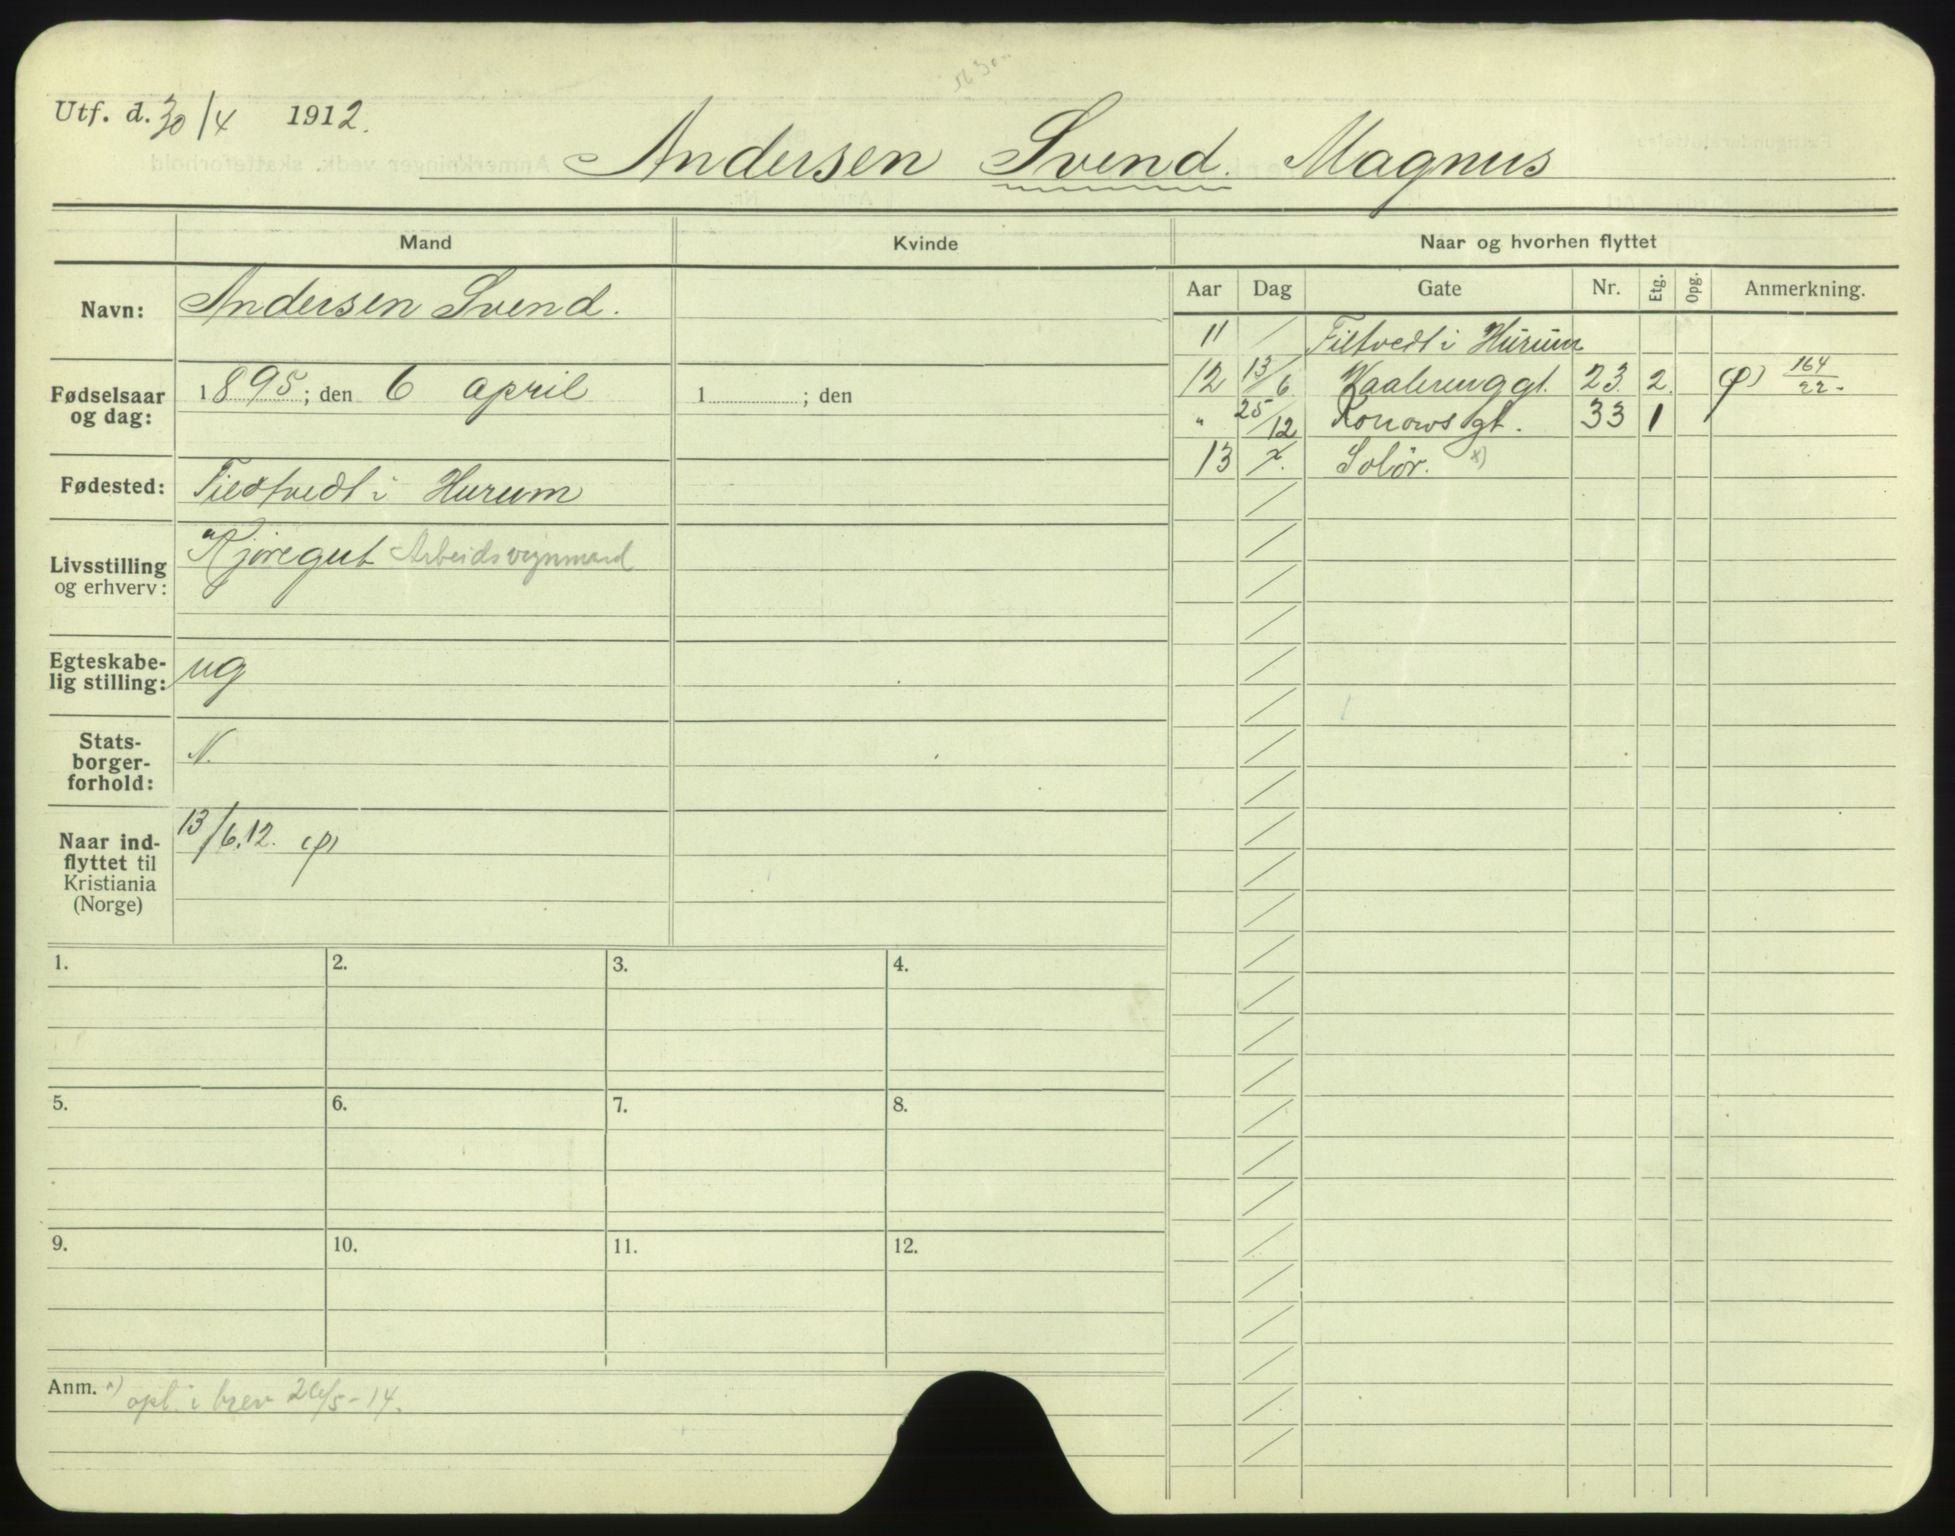 Utf. d. 30/4 1912.
Andersen Svend. Magnus
Mand
Kvinde
Naar og hvorhen flyttet
Navn: Andersen Svend.
Fødselsaar og dag: 1895; den 6 april
1 ; den
Fødested: Filtvedt i Hurum
Livsstilling og erhverv: Kjøregut Arbeidsvognmand
Egteskabe-
lig stilling: ug
Stats-
borger-
forhold: N.
Naar ind-
flyttet til
Kristiania
(Norge)
13/6.12. (p)
Aar Dag Gate Nr. Etg. Opg. Anmerkning.
11 Filtvedt i Hurum
12 13/6 Vaalerenggt. 23. 2. 164/22-
" 25/12 Konowsgt. 33 1
13 Solør. x)
1. 2. 3. 4.
5. 6. 7. 8.
9. 10. 11. 12.
Anm. x) opl. i brev 26/5-14.